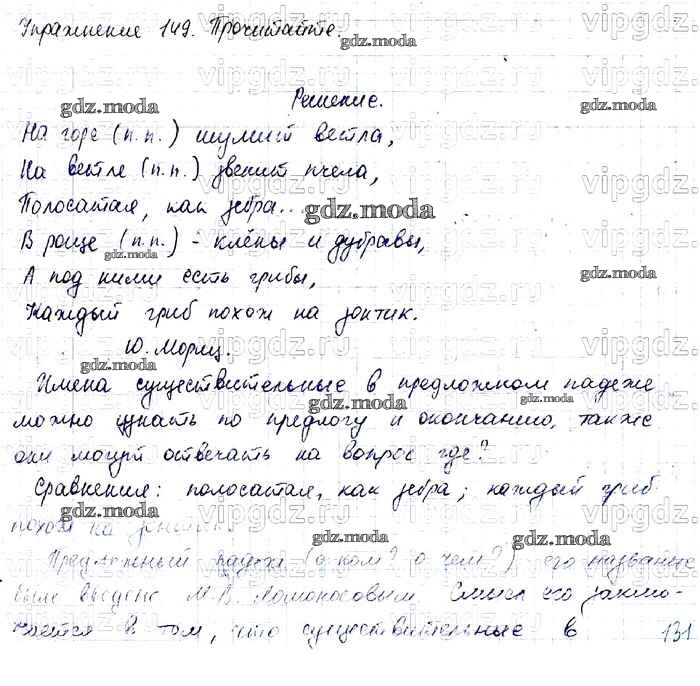 Упражнение 149. Прочитайте.
Решение.
На горе (п.п.) шумит ветла,
На ветле (п.п.) звенит пчела,
Полосатая, как зебра...
В роще (п.п.) - клёны и дубравы,
А под ними есть грибы,
Каждый гриб похож на зонтик.
Ю. Мориц.
Имена существительные в предложном падеже
можно узнать по предлогу и окончанию, также
они могут отвечать на вопрос где?
Сравнения: полосатая, как зебра; каждый гриб
похож на зонтик.
Предложный падеж (о ком? о чем?) его название
было введено М.В. Ломоносовым. Смысл его заклю-
чается в том, что существительные в
131
gdz.moda
vipgdz.ru